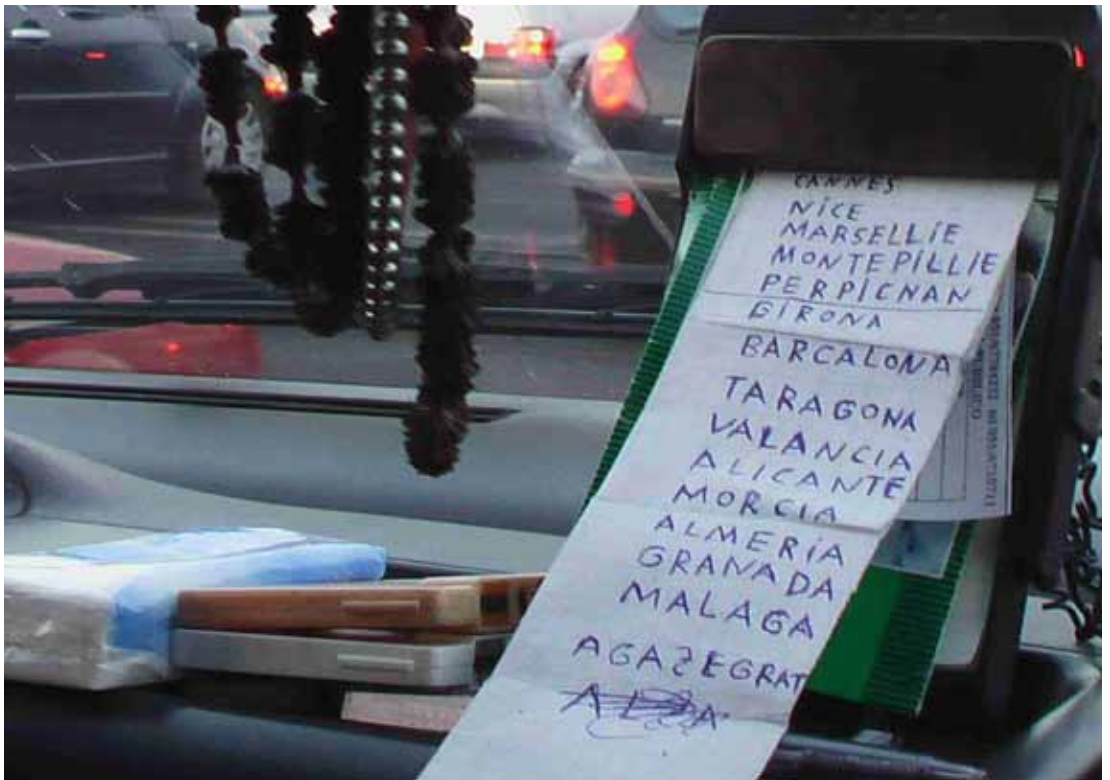 CANNES
NiCE
MARSELLiE
MONTEPILLIE
PERPiCNAN
GiRONA
BARCALONA
TARAGONA
VALANCIA
ALICANTE
MORCiA
ALMERiA
GRANADA
MALAGA
AGAZEGRAT